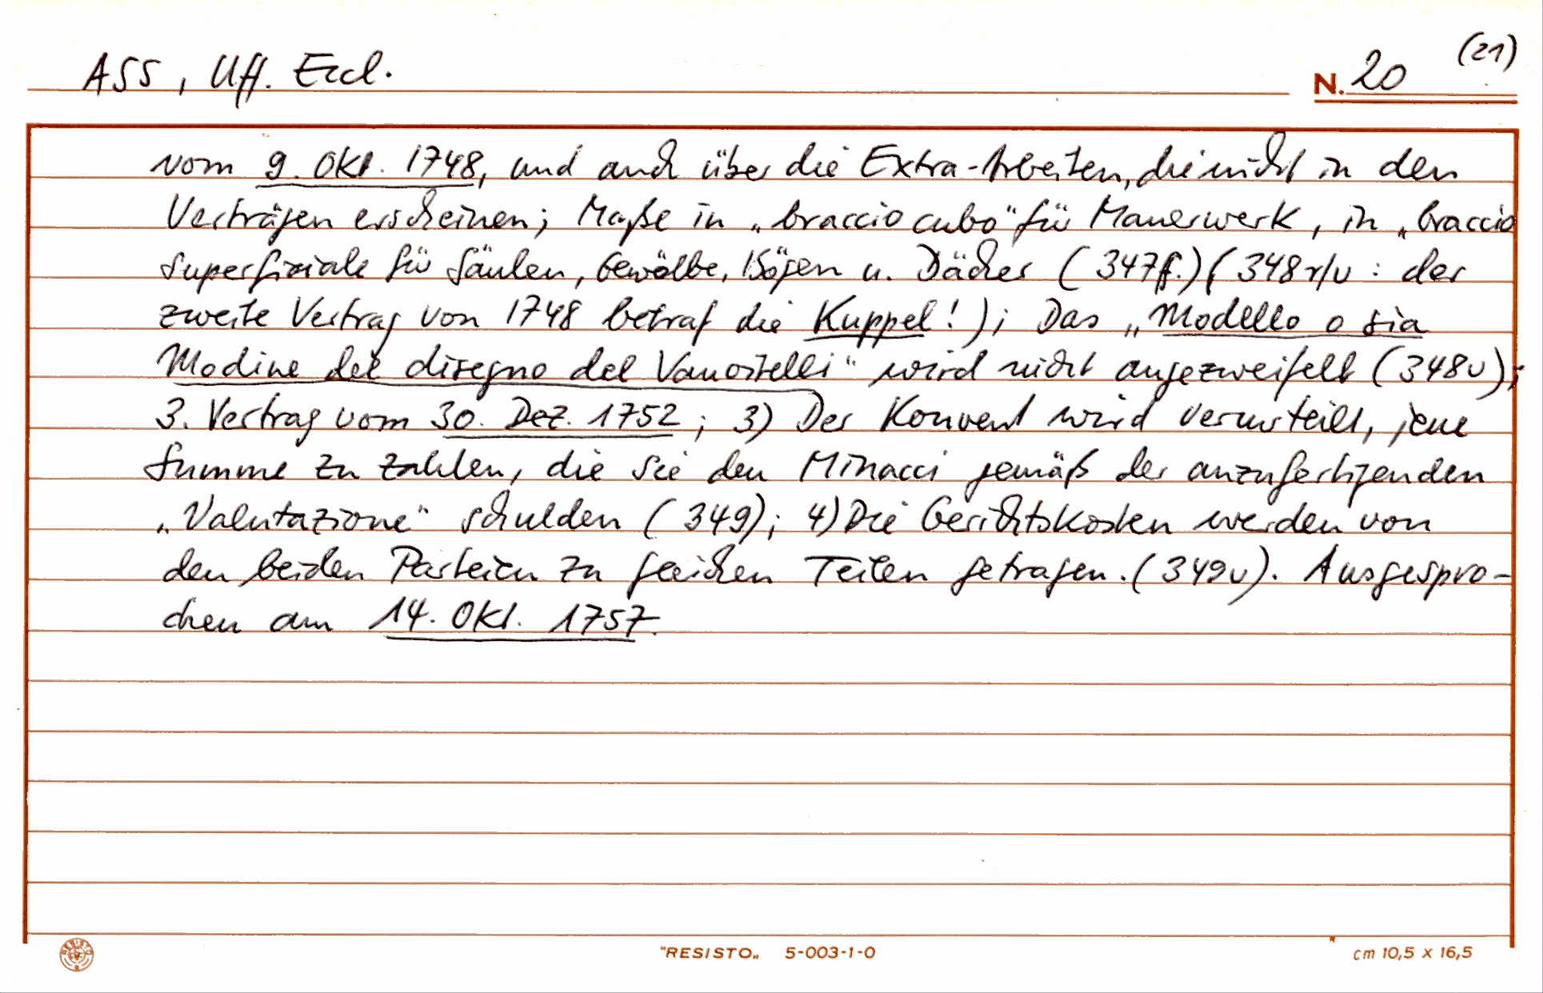 ASS, Uff. Eccl.
N. 20 (21)
vom 9. Okt. 1748, und auch über die Extra-Arbeiten, die nicht in den
Verträgen erscheinen; Maße in „braccio cubo" für Mauerwerk, in „braccio
superfiziale für Säulen, Gewölbe, Bögen u. Dächer (347ff.) (348r/v: der
zweite Vertrag von 1748 betraf die Kuppel!); Das „Modello o sia
Modine del disegno del Vanvitelli" wird nicht angezweifelt (348v);
3. Vertrag vom 30. Dez. 1752; 3) Der Konvent wird verurteilt, jene
Summe zu zahlen, die sie den Minacci gemäß der anzufertigenden
„Valutazione" schulden (349); 4) Die Gerichtskosten werden von
den beiden Parteien zu gleichen Teilen getragen. (349v). Ausgespro-
chen am 14. Okt. 1757.
"RESISTO„ 5-003-1-0
cm 10,5 x 16,5